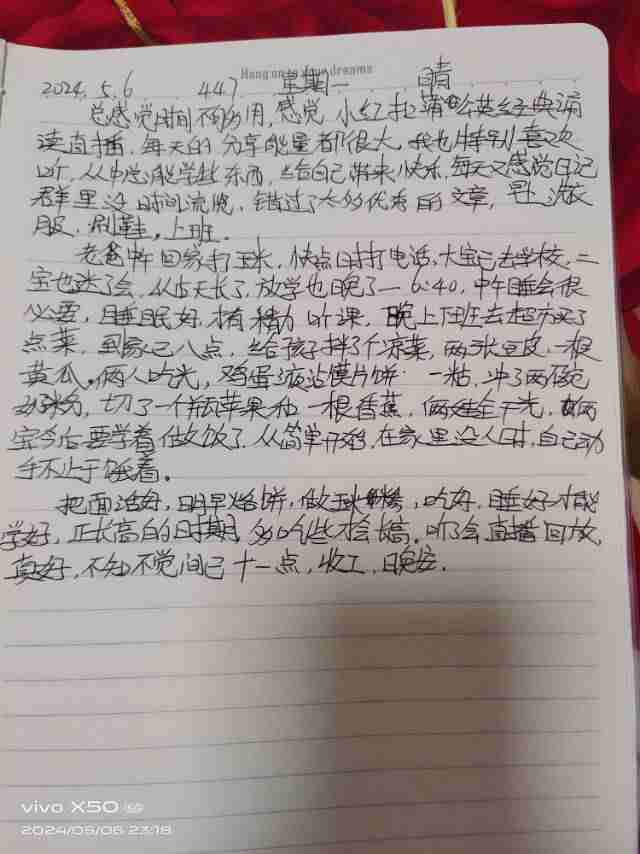 Hang on to your dreams
2024.5.6 447 星期一 晴
总感觉时间不够用,感觉小红拉蒲公英经典诵
读直播,每天的分享能量都很大,我也特别喜欢
听,从中总能学些东西,给自己带来快乐,每天又感觉日记
群里没时间流览,错过了太多优秀的文章,早上洗衣
服,刷鞋,上班。
老爸中午回家打玉米,快点时打电话,大宝已去学校,二
宝也迷了会,从5天长了,放学也晚了一6:40,中午睡会很
必要,睡眠好,才有精力听课,晚上下班去超市买了
点菜,到家已八点,给孩子拌了个凉菜,两张豆皮,一根
黄瓜。俩人吃光,鸡蛋液沾馍片饼一粘,冲了两碗
奶粉,切了一个苹果和一根香蕉,俩娃全干光,俩
宝今后要学着做饭了,从简单开始,在家里没人时,自己动
手不止于饿着。
把面活好,明早烙饼,做 ,吃好,睡好才能
学好,正长高的时期,多吃些才会长高。听了会直播回放,
真好,不知不觉间已十一点,收工,晚安.
vivo X50
2024/05/06 23:18